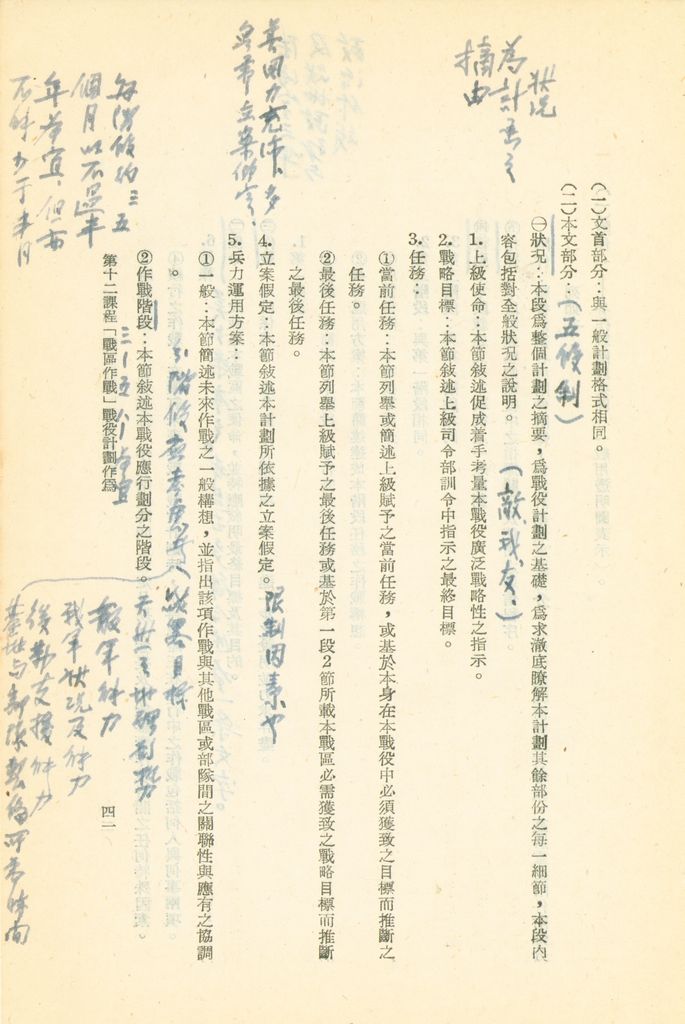 狀況
為計畫之
摘由
㈠文首部分：與一般計劃格式相同。
㈡本文部分：（五條制）
㊀狀況：本段爲整個計劃之摘要，爲戰役計劃之基礎，爲求澈底瞭解本計劃其餘部份之每一細節，本段內
容包括對全般狀況之說明。（敵、我、友、）
1.上級使命：本節敍述促成着手考量本戰役廣泛戰略性之指示。
2.戰略目標：本節敍述上級司令部訓令中指示之最終目標。
3.任務：
①當前任務：本節列舉或簡述上級賦予之當前任務，或基於本身在本戰役中必須獲致之目標而推斷之
任務。
②最後任務：本節列舉上級賦予之最後任務或基於第一段2節所載本戰區必需獲致之戰略目標而推斷
之最後任務。
4.立案假定：本節敍述本計劃所依據之立案假定。限制因素
5.兵力運用方案：
①一般：本節簡述未來作戰之一般構想，並指出該項作戰與其他戰區或部隊間之關聯性與應有之協調
。
②作戰階段：本節敍述本戰役應行劃分之階段。
每階段約三五
個月以不過半
年為宜，但亦
不能少于半月
三-五個
目標
敵軍能力
我軍狀況及能力
後勤支援能力
第十二課程「戰區作戰」戰役計劃作爲
四一